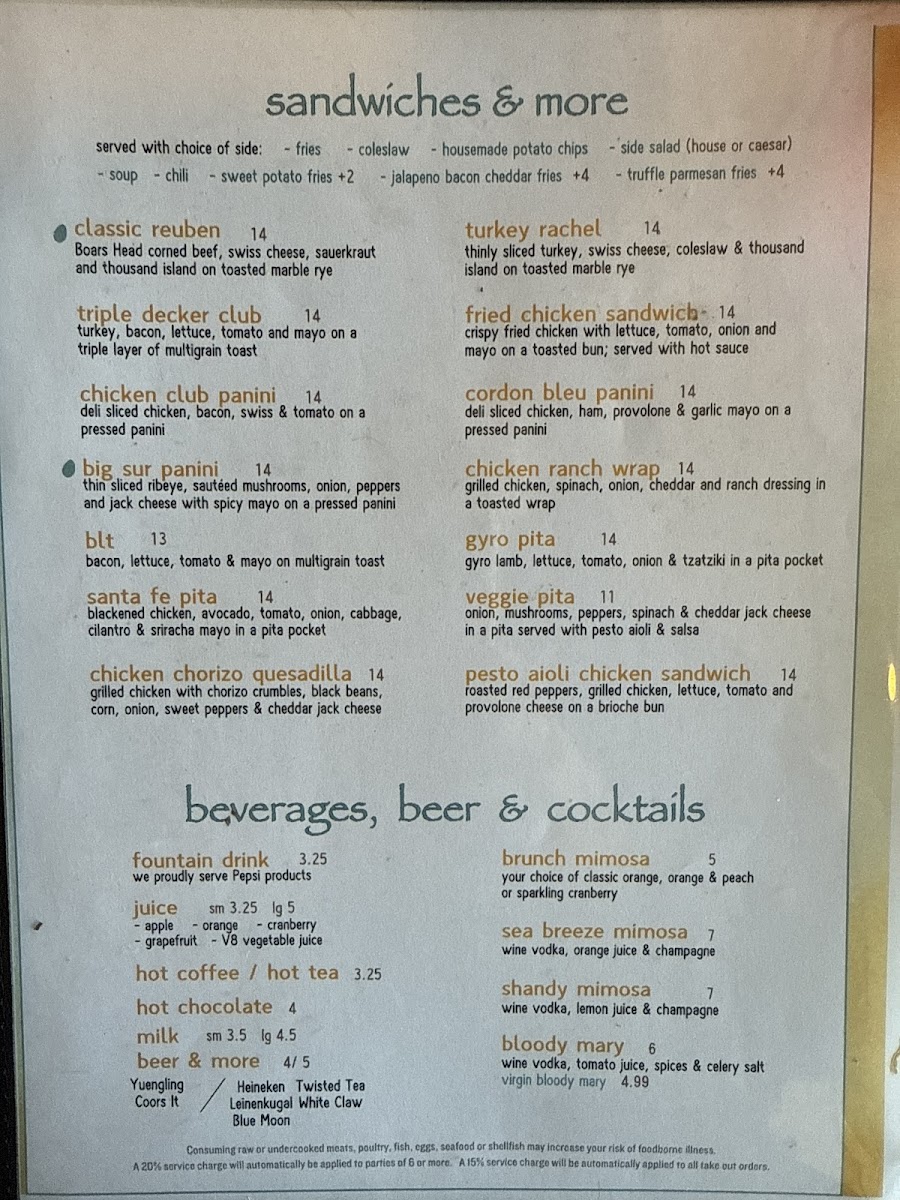 sandwiches & more
served with choice of side: - fries - coleslaw - housemade potato chips - side salad (house or caesar)
- soup - chili - sweet potato fries +2 - jalapeno bacon cheddar fries +4 - truffle parmesan fries +4
classic reuben 14
Boars Head corned beef, swiss cheese, sauerkraut
and thousand island on toasted marble rye
triple decker club 14
turkey, bacon, lettuce, tomato and mayo on a
triple layer of multigrain toast
chicken club panini 14
deli sliced chicken, bacon, swiss & tomato on a
pressed panini
big sur panini 14
thin sliced ribeye, sautéed mushrooms, onion, peppers
and jack cheese with spicy mayo on a pressed panini
blt 13
bacon, lettuce, tomato & mayo on multigrain toast
santa fe pita 14
blackened chicken, avocado, tomato, onion, cabbage,
cilantro & sriracha mayo in a pita pocket
chicken chorizo quesadilla 14
grilled chicken with chorizo crumbles, black beans,
corn, onion, sweet peppers & cheddar jack cheese
turkey rachel 14
thinly sliced turkey, swiss cheese, coleslaw & thousand
island on toasted marble rye
fried chicken sandwich 14
crispy fried chicken with lettuce, tomato, onion and
mayo on a toasted bun; served with hot sauce
cordon bleu panini 14
deli sliced chicken, ham, provolone & garlic mayo on a
pressed panini
chicken ranch wrap 14
grilled chicken, spinach, onion, cheddar and ranch dressing in
a toasted wrap
gyro pita 14
gyro lamb, lettuce, tomato, onion & tzatziki in a pita pocket
veggie pita 11
onion, mushrooms, peppers, spinach & cheddar jack cheese
in a pita served with pesto aioli & salsa
pesto aioli chicken sandwich 14
roasted red peppers, grilled chicken, lettuce, tomato and
provolone cheese on a brioche bun
beverages, beer & cocktails
fountain drink 3.25
we proudly serve Pepsi products
juice sm 3.25 lg 5
- apple - orange - cranberry
- grapefruit - V8 vegetable juice
hot coffee / hot tea 3.25
hot chocolate 4
milk sm 3.5 lg 4.5
beer & more 4/ 5
Yuengling / Heineken Twisted Tea
Coors lt Leinenkugal White Claw
Blue Moon
brunch mimosa 5
your choice of classic orange, orange & peach
or sparkling cranberry
sea breeze mimosa 7
wine vodka, orange juice & champagne
shandy mimosa 7
wine vodka, lemon juice & champagne
bloody mary 6
wine vodka, tomato juice, spices & celery salt
virgin bloody mary 4.99
Consuming raw or undercooked meats, poultry, fish, eggs, seafood or shellfish may increase your risk of foodborne illness.
A 20% service charge will automatically be applied to parties of 6 or more. A 15% service charge will be automatically applied to all take out orders.